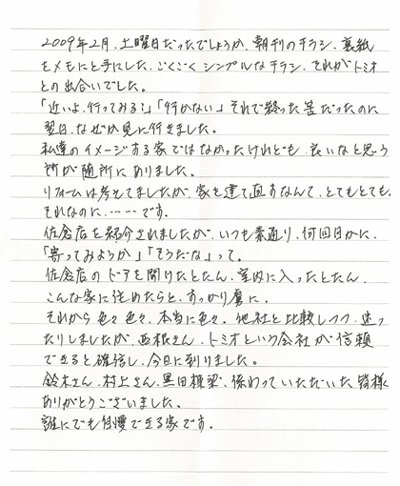 2009年2月、土曜日だったでしょうか、朝刊のチラシ、裏紙
をメモにと手にした、ごくごくシンプルなチラシ、それがトミオ
との出合いでした。
「近いよ、行ってみる?」「行かない」それで終った筈だったのに
翌日、なぜか見に行きました。
私達のイメージする家ではなかったけれども、良いなと思う
所が随所にありました。
リフォームは考えてましたが、家を建て直すなんて、とてもとても、
それなのに・・・・・です。
佐倉店を紹介されましたが、いつも素通り、何回目かに、
「寄ってみようか」「そうだな」って。
佐倉店のドアを開けたとたん、室内に入ったとたん、
こんな家に住めたらと、すっかり虜に。
それから色々色々、本当に色々。他社と比較しつつ、迷っ
たりしましたが、西根さん、トミオという会社が信頼
できると確信し、今日に到りました。
鈴木さん、村上さん、黒田棟梁、係わっていただいた皆様
ありがとうございました。
誰にでも自慢できる家です。